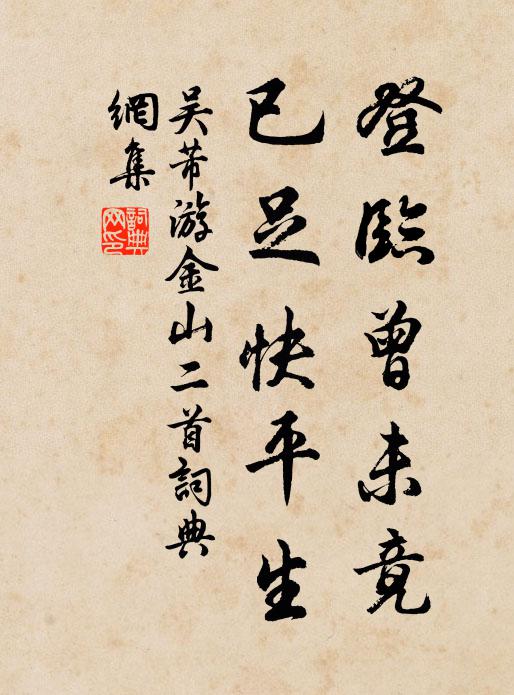 登臨曾未竟
已足快平生
吴芾游金山二首詞典
網集
詞典
网印